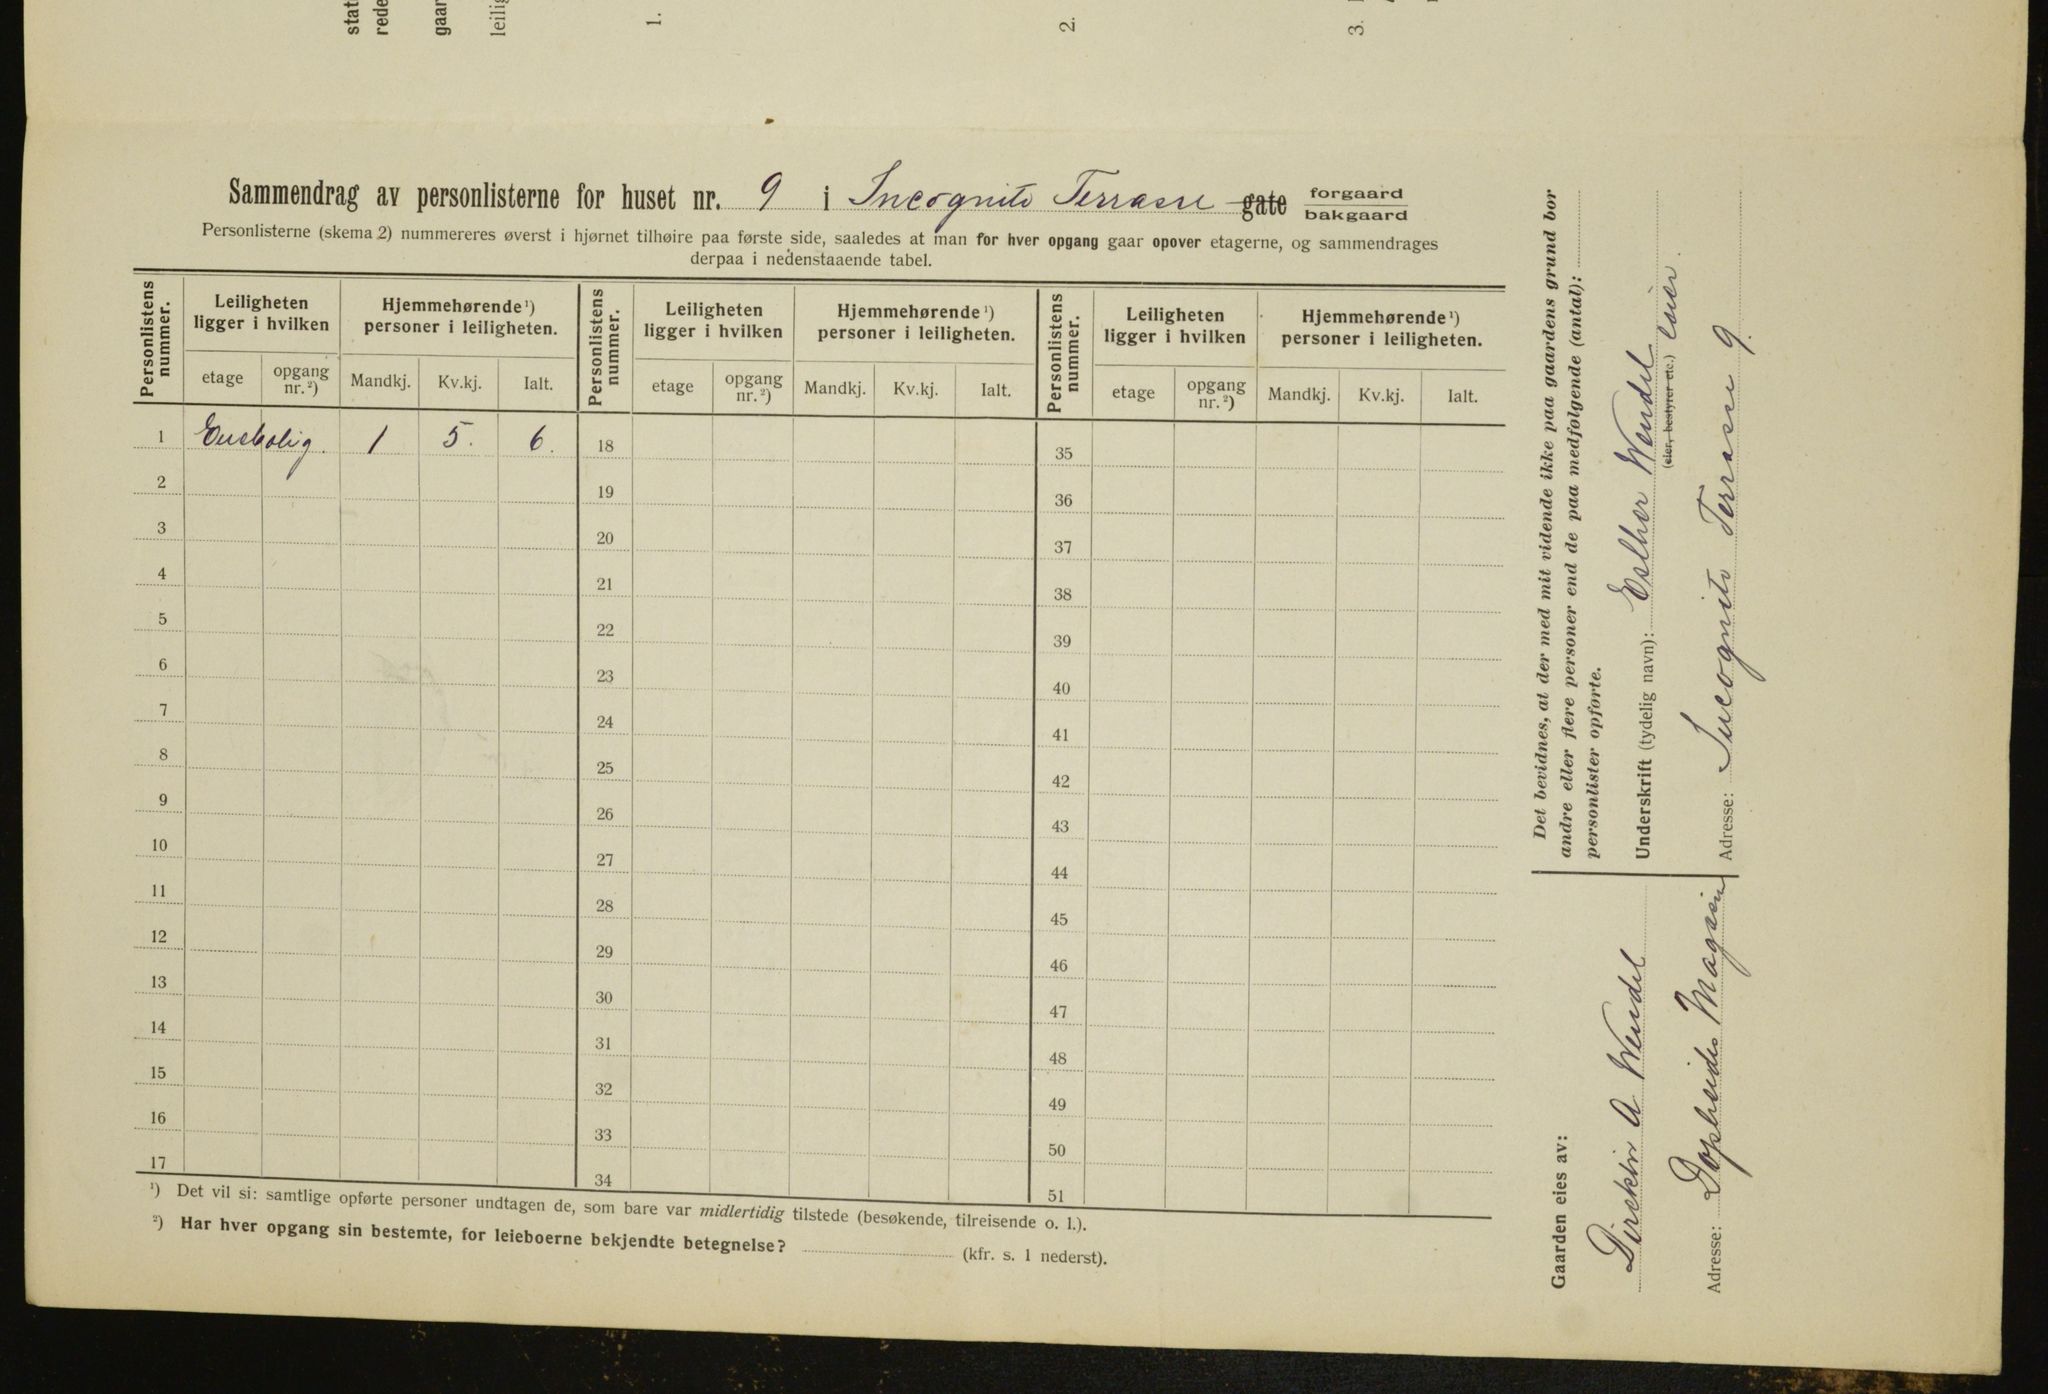 stat
rede
gaar
leilig
1.
2.
3.
Sammendrag av personlisterne for huset nr. 9 i Incognito Terrasse gate forgaard
bakgaard
Personlisterne (skema 2) nummereres øverst i hjørnet tilhøire paa første side, saaledes at man for hver opgang gaar opover etagerne, og sammendrages
derpaa i nedenstaaende tabel.
Personlistens nummer. Leiligheten ligger i hvilken Hjemmehørende ¹) personer i leiligheten. Personlistens nummer. Leiligheten ligger i hvilken Hjemmehørende ¹) personer i leiligheten. Personlistens nummer. Leiligheten ligger i hvilken Hjemmehørende ¹) personer i leiligheten.
etage opgang nr. ²) Mandkj. Kv.kj. Ialt. etage opgang nr. ²) Mandkj. Kv.kj. Ialt. etage opgang nr. ²) Mandkj. Kv.kj. Ialt.
1 Enebolig. 1 5. 6. 18 35
2 19 36
3 20 37
4 21 38
5 22 39
6 23 40
7 24 41
8 25 42
9 26 43
10 27 44
11 28 45
12 29 46
13 30 47
14 31 48
15 32 49
16 33 50
17 34 51
¹) Det vil si: samtlige opførte personer undtagen de, som bare var midlertidig tilstede (besøkende, tilreisende o. l.).
²) Har hver opgang sin bestemte, for leieboerne bekjendte betegnelse? (kfr. s. 1 nederst).
Gaarden eies av:
Direktør A Wendel
Adresse: Dopheides Magasin
Det bevidnes, at der med mit vidende ikke paa gaardens grund bor
andre eller flere personer end de paa medfølgende (antal):
personlister opførte.
Underskrift (tydelig navn): Esther Wendel
(eier, bestyrer etc.) eier.
Adresse: Incognito Terrasse 9.